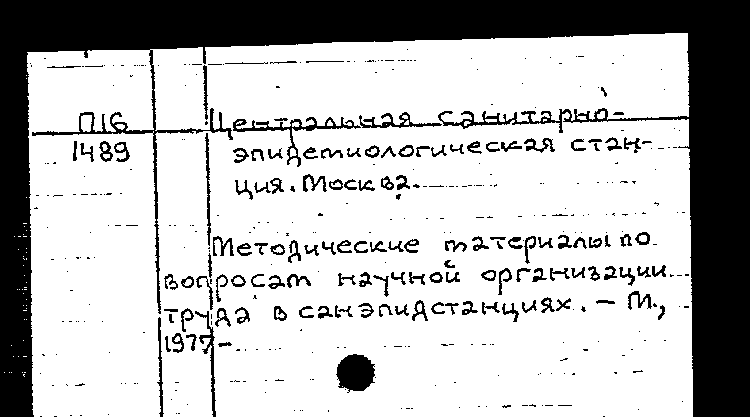 П16 Центральная санитарно-
1489 эпидемиологическая стан-
ция. Москва.
Методические материалы по
вопросам научной организации
труда в санэпидстанциях. – М.,
1977 –